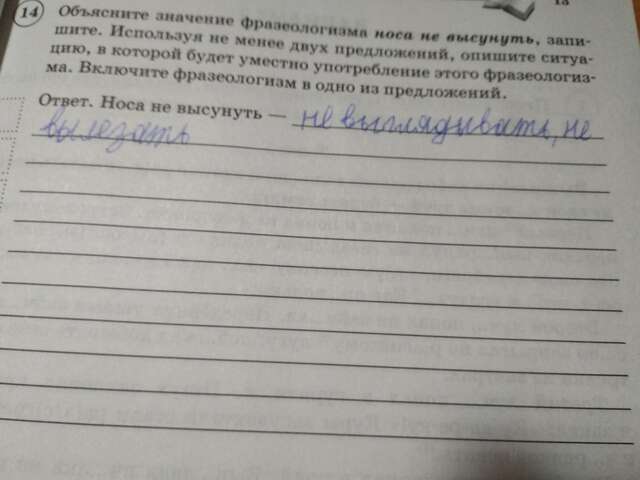 13
14 Объясните значение фразеологизма носа не высунуть, запи-
шите. Используя не менее двух предложений, опишите ситуа-
цию, в которой будет уместно употребление этого фразеологиз-
ма. Включите фразеологизм в одно из предложений.
Ответ. Носа не высунуть — не выглядывать, не
вылезать